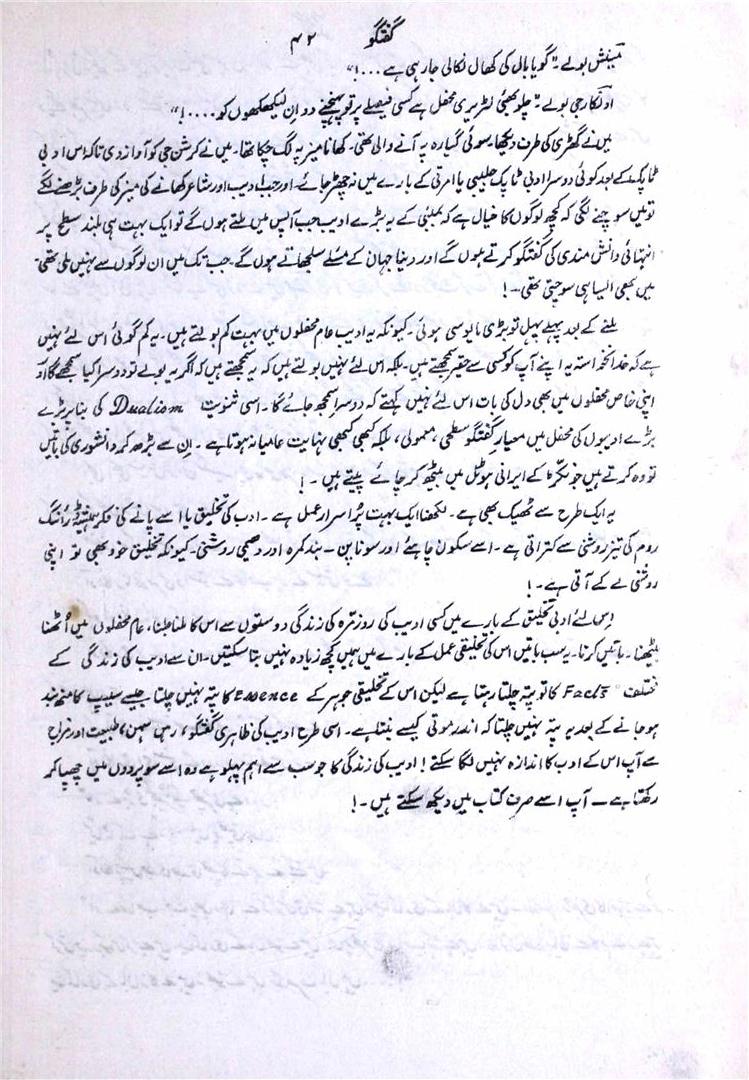 گفتگو ۴۲
بولے۔ "گویا بال کی کھال نکالی جا رہی ہے...!"
اونکار جی بولے۔ "چلو بھئی لٹریری محفل ہے کسی فیصلے پر تو پہنچنے دو ان لیکھکھوں کو....!"
میں نے گھڑی کی طرف دیکھا، سوئی گیارہ پہ آنے والی تھی۔ کھانا میز پہ لگ چکا تھا۔ میں نے کرشن جی کو آواز دی تاکہ اس ادبی
ٹاپک کے بعد کوئی دوسرا ادبی ٹاپک جلیبی یا امرتی کے بارے میں نہ چھڑ جائے۔ اور جب ادیب اور شاعر کھانے کی میز کی طرف بڑھنے لگے
تو میں سوچنے لگی کہ کچھ لوگوں کا خیال ہے کہ بمبئی کے یہ بڑے ادیب جب آپس میں ملتے ہوں گے تو ایک بہت ہی بلند سطح پر
انتہائی دانش مندی کی گفتگو کرتے ہوں گے اور دنیا جہان کے مسئلے سلجھاتے ہوں گے۔ جب تک میں ان لوگوں سے نہیں ملی تھی۔
میں بھی ایسا ہی سوچتی تھی۔!
ملنے کے بعد پہلے پہل تو بڑی مایوسی ہوئی۔ کیونکہ یہ ادیب عام محفلوں میں بہت کم بولتے ہیں۔ یہ کم گوئی اس لئے نہیں
ہے کہ خدانخواستہ یہ اپنے آپ کو کسی سے حقیر سمجھتے ہیں۔ بلکہ اس لئے نہیں بولتے ہیں کہ یہ سمجھتے ہیں کہ اگر یہ بولے تو دوسرا کیا سمجھے گا اور
اپنی خاص محفلوں میں بھی دل کی بات اس لئے نہیں کہتے کہ دوسرا سمجھ جائے گا۔ اسی ثنویت Dualism کی بنا پر بڑے
بڑے ادیبوں کی محفل میں معیارِ گفتگو سطحی، معمولی، بلکہ کبھی کبھی نہایت عامیانہ ہوتا ہے۔ ان سے بڑھ کر دانشوری کی باتیں
تو وہ کرتے ہیں جو نکڑ کے ایرانی ہوٹل میں بیٹھ کر چائے پیتے ہیں۔!
یہ ایک طرح سے ٹھیک بھی ہے۔ لکھنا ایک بہت پُراسرار عمل ہے۔ ادب کی تخلیق یا اسے پانے کی فکر ہمیشہ ڈرائنگ
روم کی تیز روشنی سے کتراتی ہے۔ اسے سکون چاہئے اور سوناپن۔ بند کمرہ اور دھیمی روشنی۔ کیونکہ تخلیق خود بھی تو اپنی
روشنی لے کے آتی ہے۔!
اس لئے ادبی تخلیق کے بارے میں کسی ادیب کی روز مرّہ کی زندگی دوستوں سے اس کا ملنا جلنا، عام محفلوں میں اُٹھنا
بیٹھنا۔ باتیں کرنا۔ یہ سب باتیں اس کی تخلیقی عمل کے بارے میں ہمیں کچھ زیادہ نہیں بتا سکتیں۔ ان سے ادیب کی زندگی کے
مختلف Facts کا تو پتہ چلتا رہتا ہے لیکن اس کے تخلیقی جوہر کے Essence کا پتہ نہیں چلتا۔ جیسے سیپ کا منھ بند
ہو جانے کے بعد یہ پتہ نہیں چلتا کہ اندر موتی کیسے بنتا ہے۔ اسی طرح ادیب کی ظاہری گفتگو، رہن سہن، طبیعت اور مزاج
سے آپ اس کے ادب کا اندازہ نہیں لگا سکتے! ادیب کی زندگی کا جو سب سے اہم پہلو ہے وہ اسے سو پردوں میں چھپا کر
رکھتا ہے۔ آپ اسے صرف کتاب میں دیکھ سکتے ہیں۔!